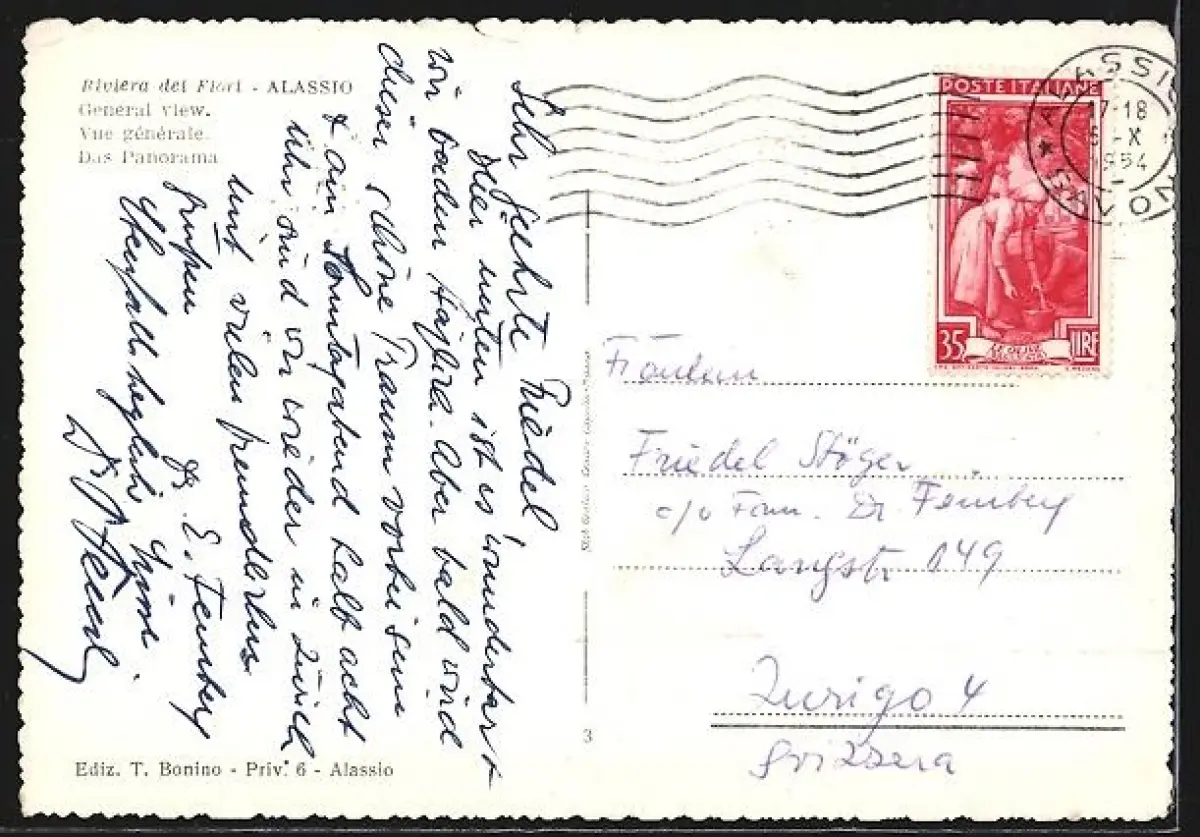 Riviera dei Fiori - ALASSIO
General view.
Vue générale.
Das Panorama
Sehr geehrte Friedel,
Hier unten ist es wunderbar
wir baden täglich. Aber bald wird
dieser schöne Traum vorbei sein
& am Sonntagabend halb acht
Uhr sind wir wieder in Zürich
Mit vielen freundlichen
Grüßen
Dr. E. Feinberg
Ebenfalls herzliche Grüsse
3
Ediz. T. Bonino - Priv. 6 - Alassio
POSTE ITALIANE
35 LIRE
ALASSIO
17-18
X
1954
Fräulein
Friedel Stöger
c/o Fam. Dr. Feinberg
Langstr. 149
Zurigo 4
Svizzera